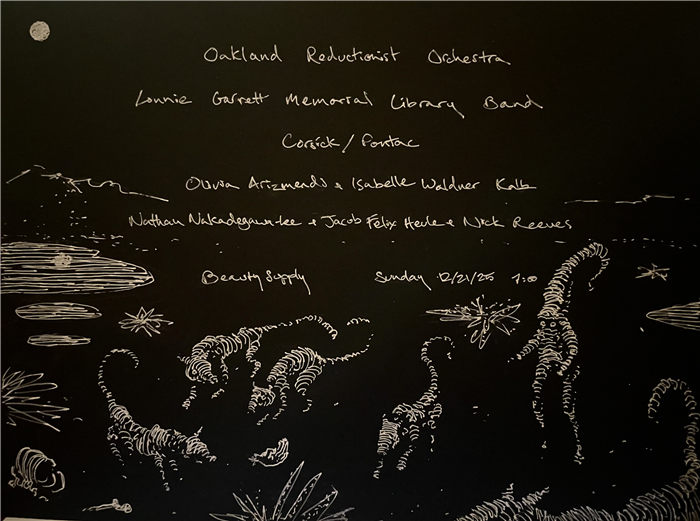 Oakland Reductionist Orchestra
Lonnie Garrett Memorial Library Band
Corsick / Fontac
Olivia Arizmendi + Isabelle Waldner Kalb
Nathan Nakadegawa-Lee + Jacob Felix Heule + Nick Reeves
Beauty Supply Sunday 12/21/25 7:00